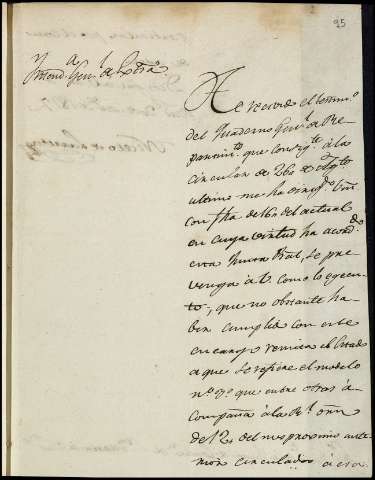 95
Yntend.ª Gen.l de Extr.ª
He recivido el testim.º
del Quaderno Gen.l de Re
partim.to que consig.te à la
circular de 26 de
ultimo me ha dirig.do V.
con fha de 16 del actual
en cuya virtud ha acord.do
esta Junta R.l, se pre
venga à V. como lo egecu
to, que no obstante ha
ber cumplido con este
encargo remita el Estado
a que se refiere el modelo
n.º que entre otros a
compaña à la R.l orn
de 12 del mes proximo ante
rior circulados à esa